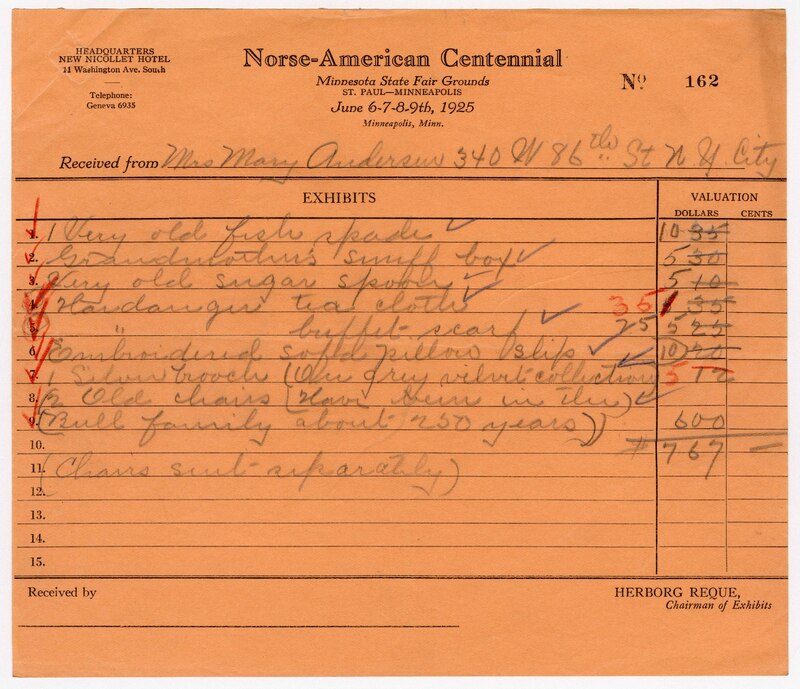 HEADQUARTERS
NEW NICOLLET HOTEL
11 Washington Ave. South
Telephone:
Geneva 6935
Norse-American Centennial
Minnesota State Fair Grounds
ST. PAUL—MINNEAPOLIS
June 6-7-8-9th, 1925
Minneapolis, Minn.
No 162
Received from Mrs Mary Andersen 340 W 86th St N. Y. City
EXHIBITS VALUATION
DOLLARS CENTS
1. 1 Very old fish spade 10 35
2. Grandmothers snuff box 5 30
3. Very old sugar spoon 5 10
4. Hardanger tea cloth 35 35
5. " buffet scarf 25 5 25
6. Embroidered sofa pillow slip 10 20
7. 1 Silver brooch (On grey velvet collection 5 12
8. (2 Old chairs (Have been in the)
9. (Bull family about 250 years)) 600
10. $ 767 —
11. (Chairs sent separately)
12.
13.
14.
15.
Received by
HERBORG REQUE,
Chairman of Exhibits